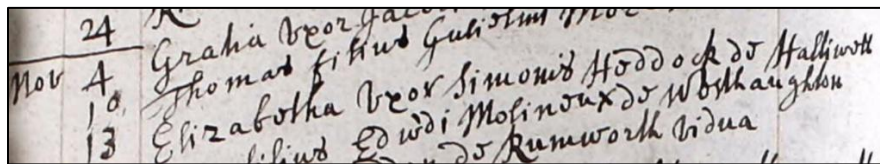 24 R
Gratia Vxor Jaco
Nov 4 Thomas filius Gulielmi Mo
10 Elizabetha Vxor Simonis Heddock de Halliwell
13 filius Edwdi Molineux de Westhaughton
de Rumworth vidua